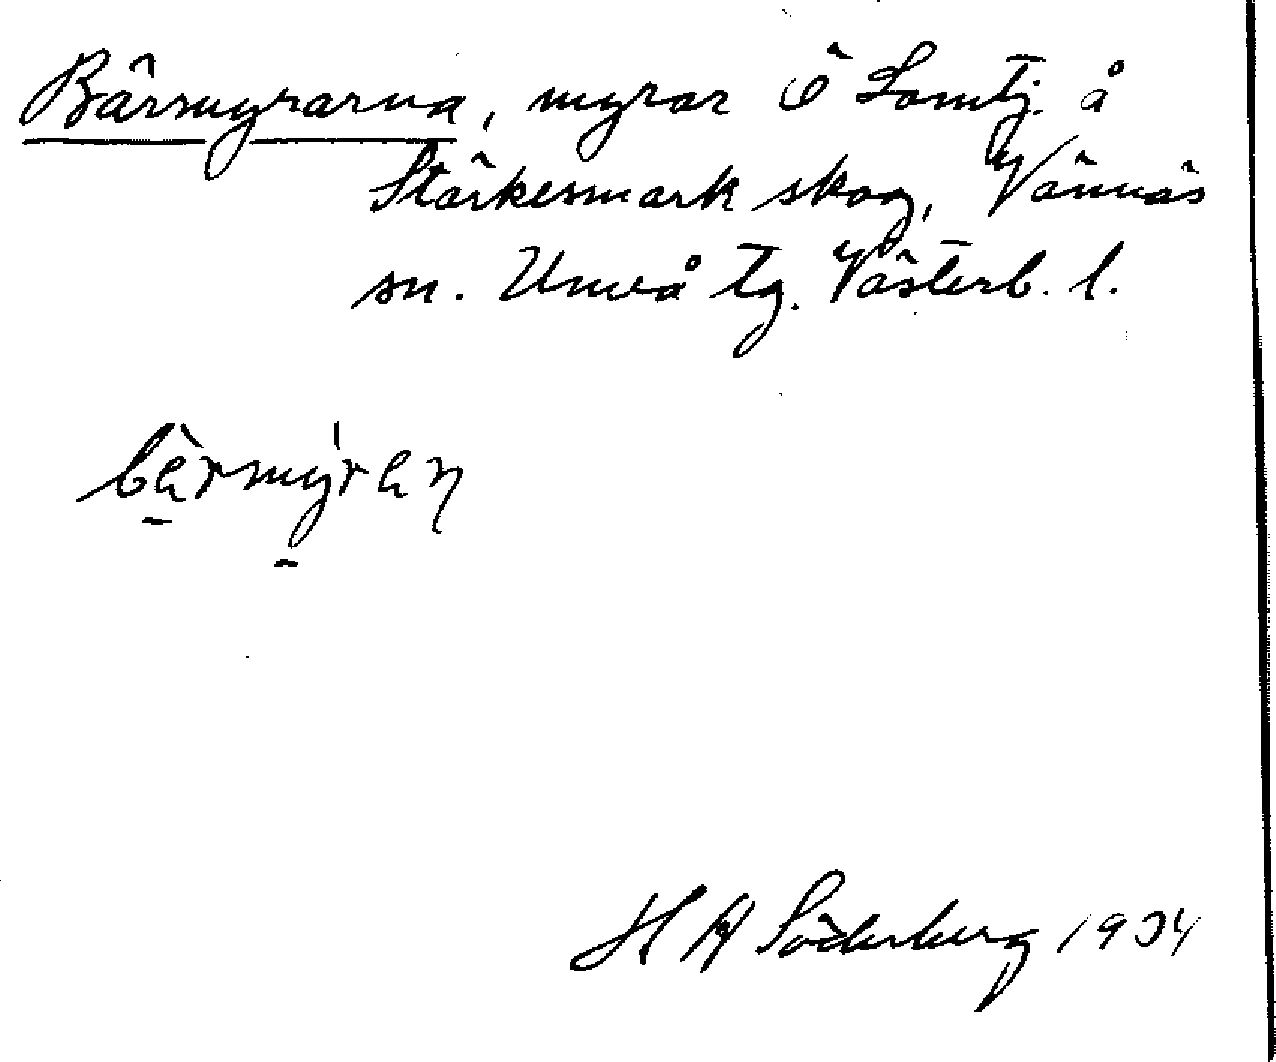 Bärmyrarna, myrar Ö Lomtj. å
Stärkesmark skog, Vännäs
sn. Umeå tg. Västerb. l.
bärmyran
H A Söderberg 1934